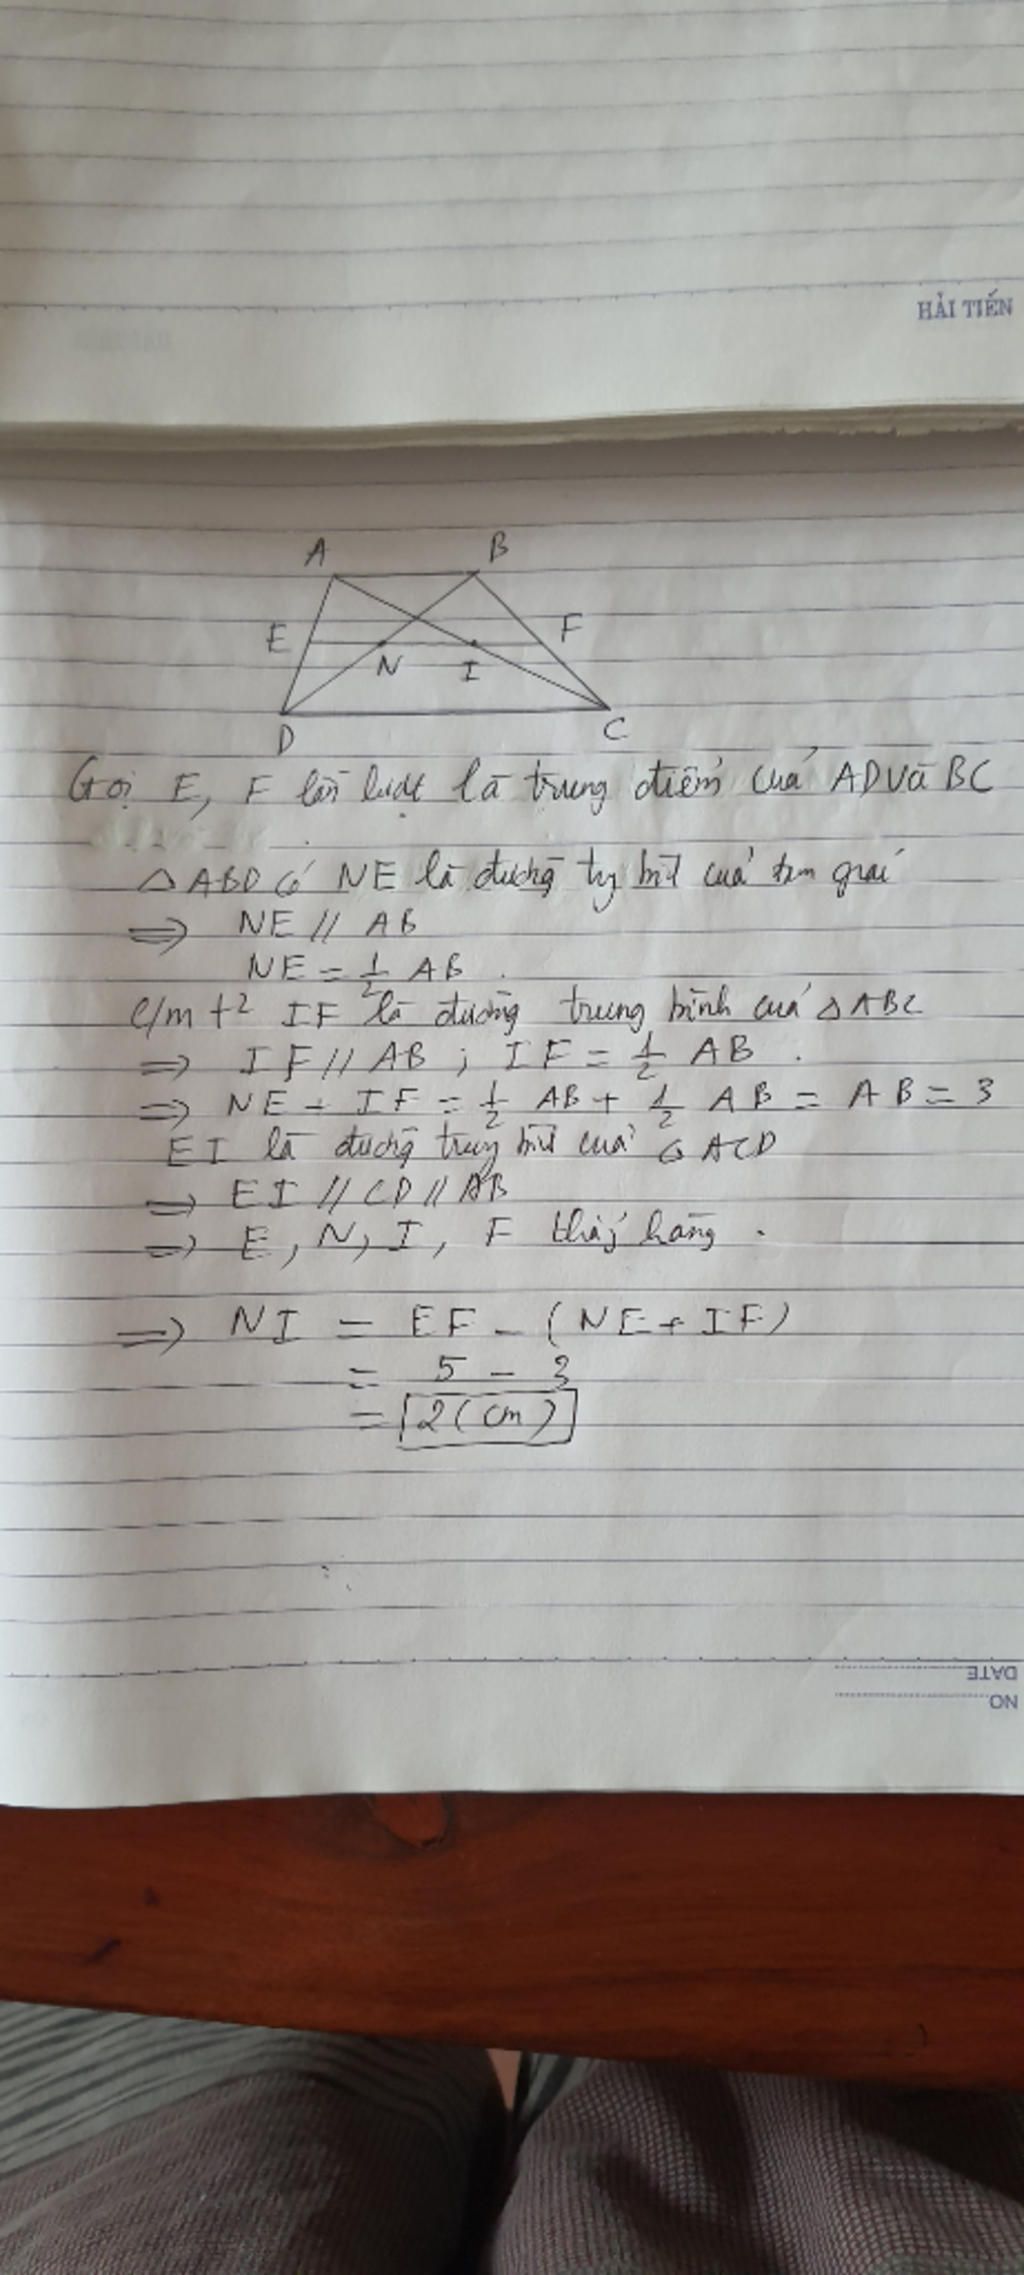 HẢI TIẾN
A B
E F
N I
D C
Gọi E, F lần lượt là trung điểm của AD và BC
△ABD có NE là đường tg bìl của tam giác
⇒ NE // AB
NE = 1/2 AB .
c/m t² IF là đường trung bình của △ABC
⇒ IF // AB ; IF = 1/2 AB .
⇒ NE + IF = 1/2 AB + 1/2 AB = AB = 3
EI là đường trung bìl của △ ACD
⇒ EI // CD // AB
⇒ E, N, I, F thẳg hàng .
⇒ NI = EF - (NE + IF)
= 5 - 3
= 2 (cm)
DATE
NO